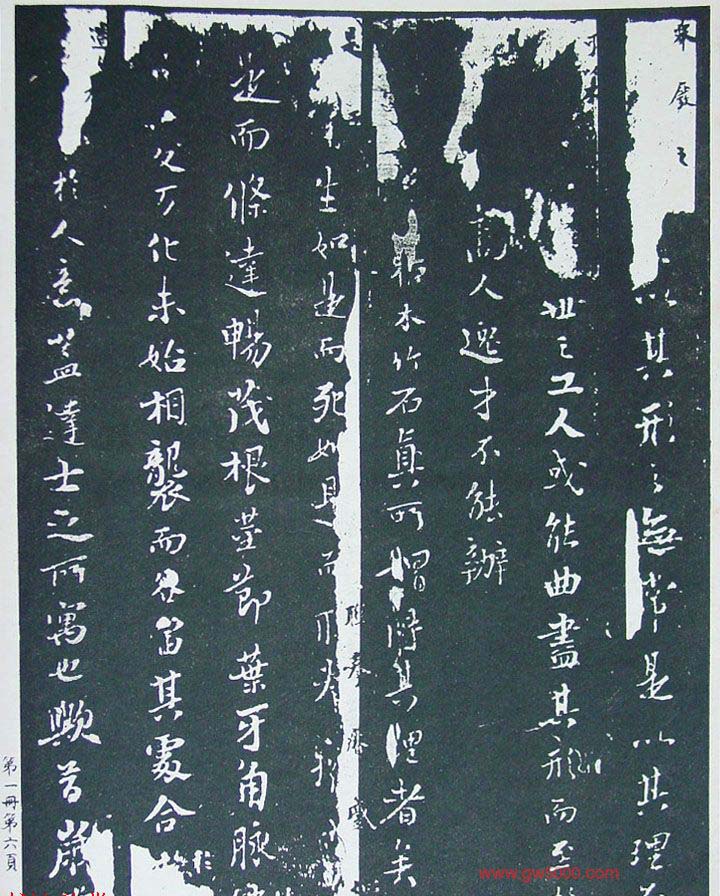 以其形之無常是以其理
世之工人或能曲盡其形而至
高人逸才不能辦
枯木竹石真所謂得其理者矣
生如是而死如是而
聯拳瘠蹙
是而條達暢茂根莖節葉牙角脈
變万化未始相襲而各當其處合於
於人意蓋達士之所寓也歟昔歲
第一冊第六頁